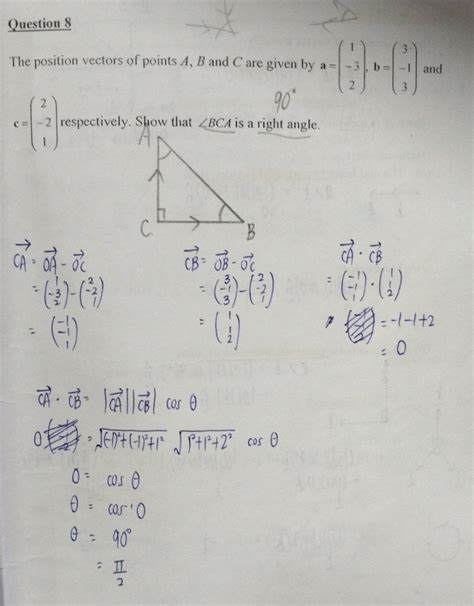 Question 8
The position vectors of points A, B and C are given by a = (1 -3 2), b = (3 -1 3) and
90°
c = (2 -2 1) respectively. Show that ∠BCA is a right angle.
A
C B
CA = OA - OC
= (-1 -3 2) - (2 -2 1)
= (-1 -1 1)
CB = OB - OC
= (3 -1 3) - (2 -2 1)
= (1 1 2)
CA · CB
= (-1 -1 1) · (1 1 2)
= -1 -1 +2
= 0
CA · CB = |CA||CB| cos θ
0 = √(-1)²+(-1)²+1² √1²+1²+2² cos θ
0 = cos θ
θ = cos⁻¹ 0
θ = 90°
= π/2